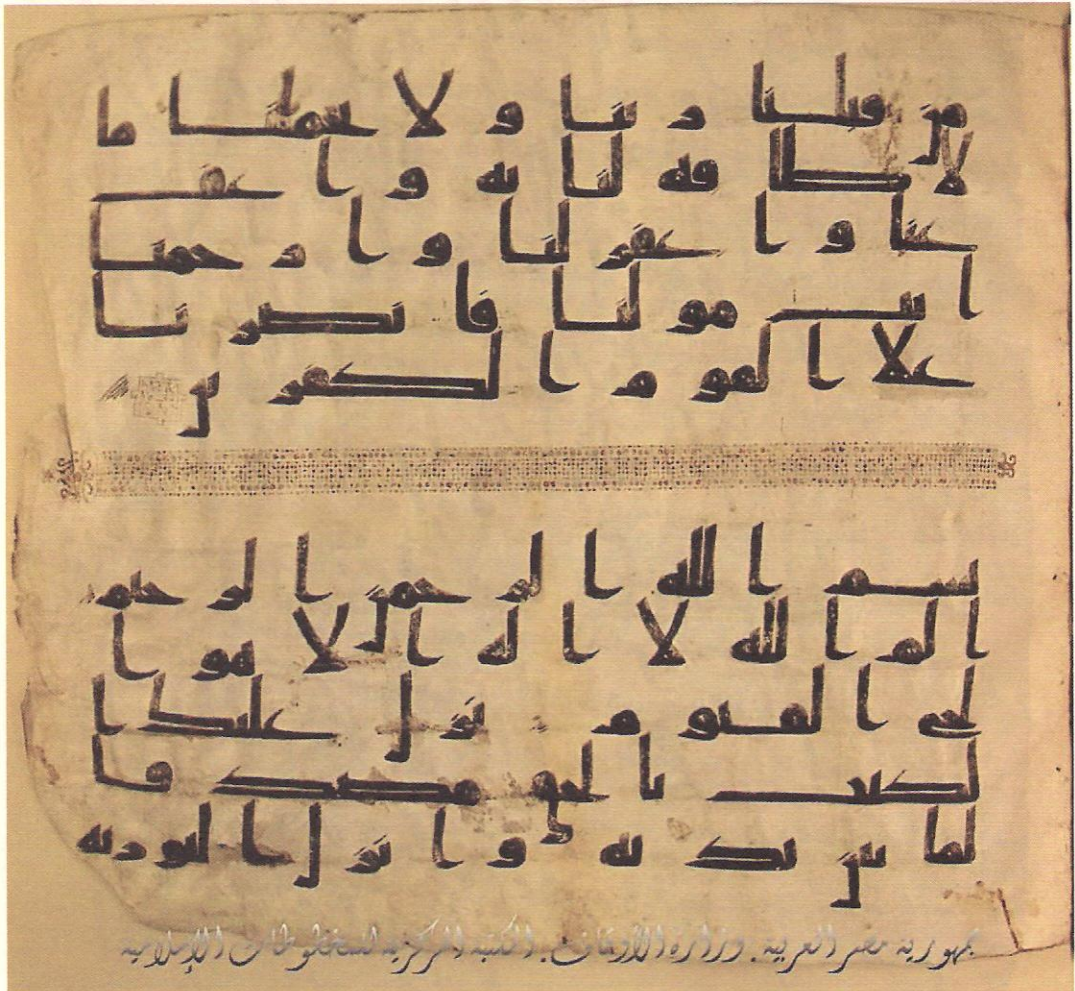 من قبلنا ربنا ولا تحملنا ما
لا طاقه لنا به واعف
عنا واغفر لنا وارحمنا
انت مولنا فانصرنا
علا القوم الكفرين
بسم الله الرحمن الرحيم
الم الله لا اله الا هو ا
لحي القيوم نزل عليك ا
لكتب بالحق مصدقا
لما بين يديه وانزل التوريه
جمهورية مصر العربية. وزارة الأوقاف. المكتبة المركزية للمخطوطات الإسلامية